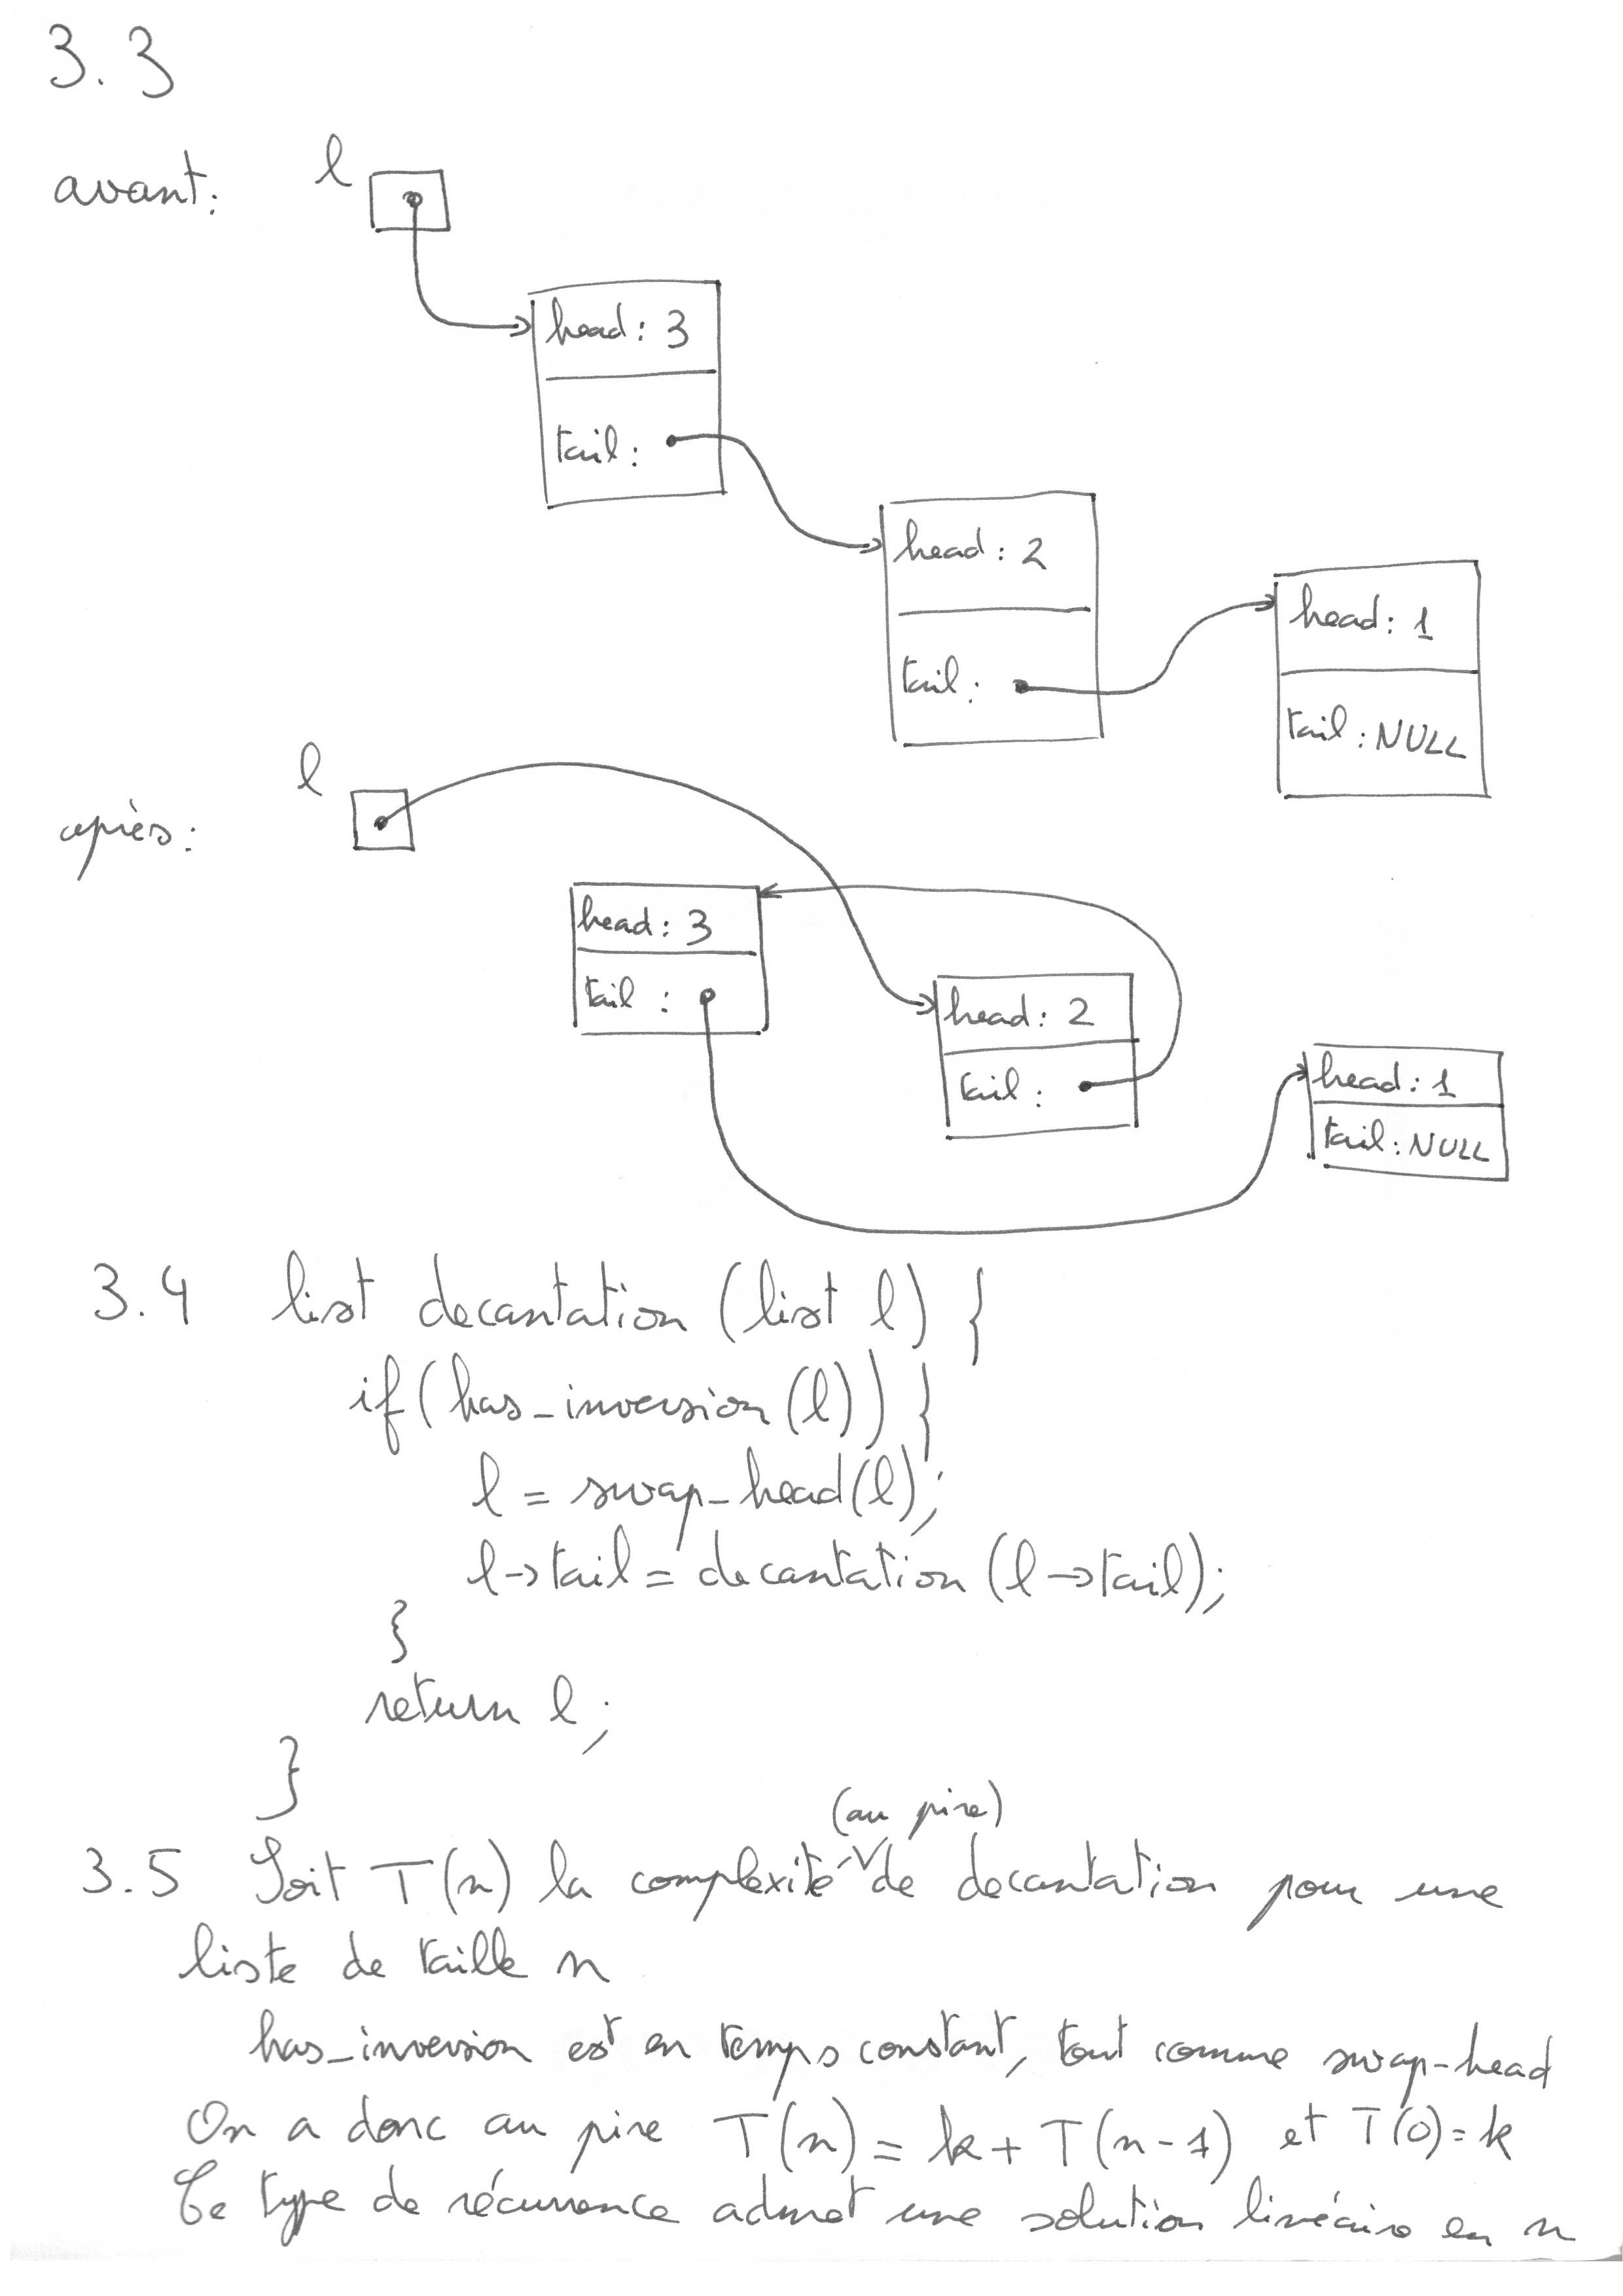 3.3
avant:
l
head: 3
tail:
head: 2
tail:
head: 1
tail: NULL
après:
l
head: 3
tail :
head: 2
tail:
head: 1
tail: NULL
3.4 list decantation (list l) {
if (has_inversion (l)) {
l = swap_head(l);
l->tail = decantation (l->tail);
}
return l;
}
(au pire)
3.5 Soit T(n) la complexité de decantation pour une
liste de taille n
has_inversion est en temps constant, tout comme swap_head
On a donc au pire T(n) = k + T(n-1) et T(0) = k
Ce type de récurrence admet une solution linéaire en n